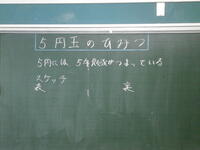 ５円玉のひみつ
５円には、５年
がつまっている
スケッチ
表 裏